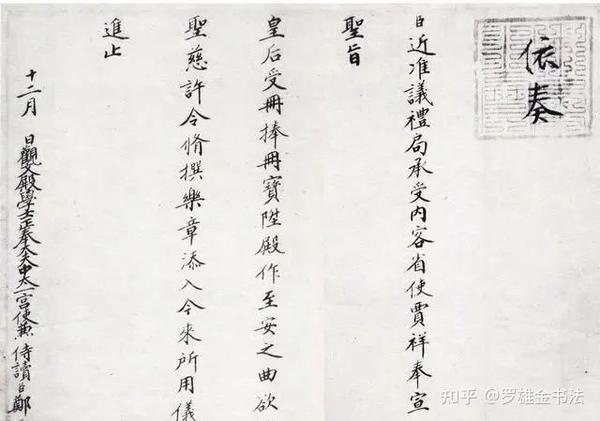 依奏
臣近准議禮局承受内客省使賈祥奉宣
聖旨
皇后受冊捧冊寶陞殿作至安之曲欲
聖慈許令脩撰樂章添入今來所用儀
進止
十二月 日觀文殿學士正奉大夫中太一宮使兼侍讀臣鄭
知乎 @罗雄金书法